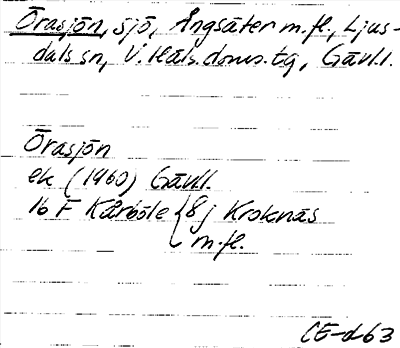 Örasjön, sjö, Ängsäter m.fl., Ljus-
dals sn, V. Häls. doms. tg, Gävl.l.
Örasjön
ek (1960) Gävl.l.
16 F Kårböle { 8j Kroknäs
m.fl.
CE-d63